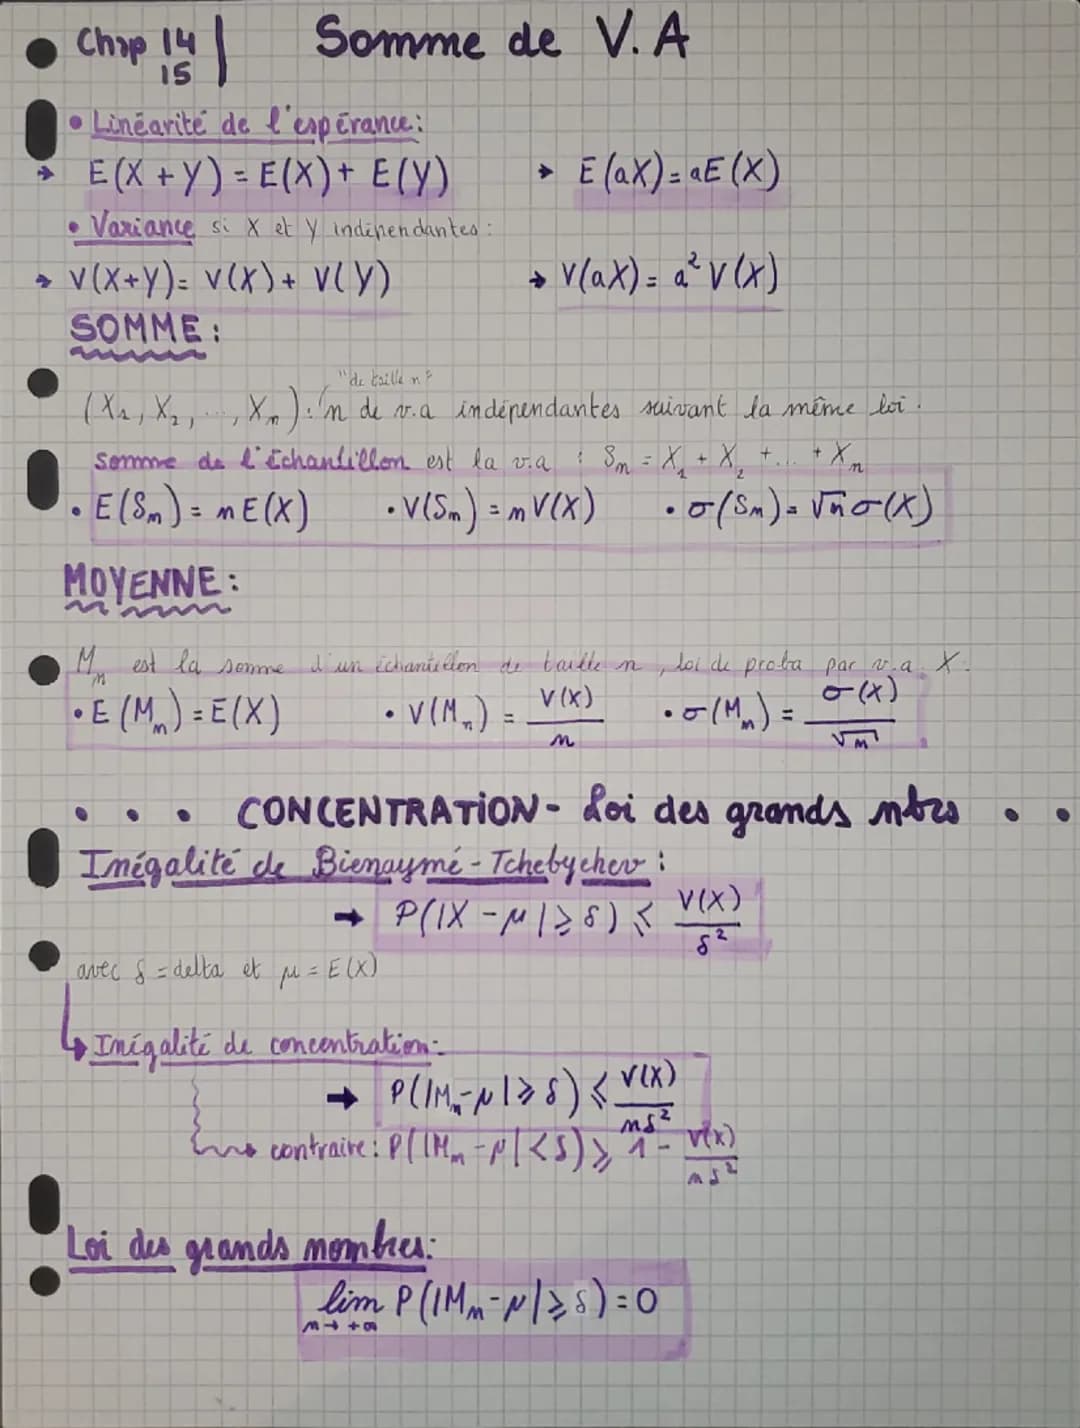 Chap 14 | Somme de V.A
15
• Linéarité de l'espérance:
→ E(X+Y) = E(X) + E(Y) → E(aX) = aE(X)
• Variance si X et Y indépendantes :
→ V(X+Y) = V(X) + V(Y) → V(aX) = a² V(X)
SOMME :
"de taille n"
(X₁, X₂, ..., Xₙ) : n de v.a indépendantes suivant la même loi.
Somme de l'échantillon est la v.a : Sₙ = X₁ + X₂ + ... + Xₙ
• E(Sₙ) = nE(X) • V(Sₙ) = nV(X) • σ(Sₙ) = √n σ(X)
MOYENNE :
Mₙ est la somme d'un échantillon de taille n, loi de proba par v.a. X.
• E(Mₙ) = E(X) • V(Mₙ) = V(X)/n • σ(Mₙ) = σ(X)/√n
• • • CONCENTRATION - Loi des grands nbrs • •
Inégalité de Bienaymé - Tchebychev :
→ P(|X - μ| ⩾ δ) ⩽ V(X)/δ²
avec δ = delta et μ = E(X)
↳ Inégalité de concentration:
→ P(|Mₙ - μ| ⩾ δ) ⩽ V(X)/nδ²
→ contraire : P(|Mₙ - μ| < δ) ⩾ 1 - V(X)/nδ²
Loi des grands nombres:
lim P(|Mₙ - μ| ⩾ δ) = 0
n → +∞